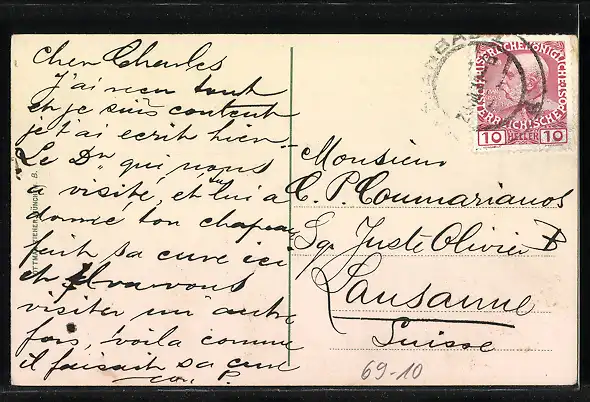 Cher Charles
J'ai reçu tout
et je suis content
je t'ai ecrit hier
Le Dr qui nous
a visité, et tu lui a
donné ton chapeau
fait sa cure ici
et il va nous
visiter un autre
fois, voila comme
il faisait sa cure
P.
Monsieur
C. P. Coumarianos
Sq. Juste Olivier
Lausanne
Suisse
69-10
KAISERLICHEKÖNIGLICHE
ÖSTERREICHISCHE POST
10 HELLER 10
OTTMAR ZIEHER, MÜNCHEN B.